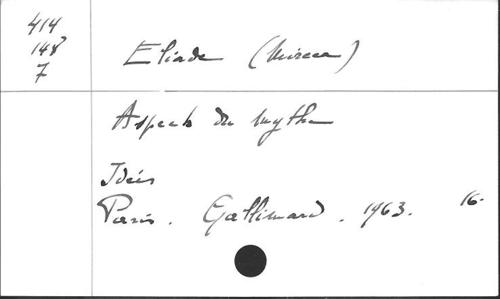 414
148
7
Eliade (Mircea)
Aspects du mythe
Idées
Paris. Gallimard. 1963. 16.